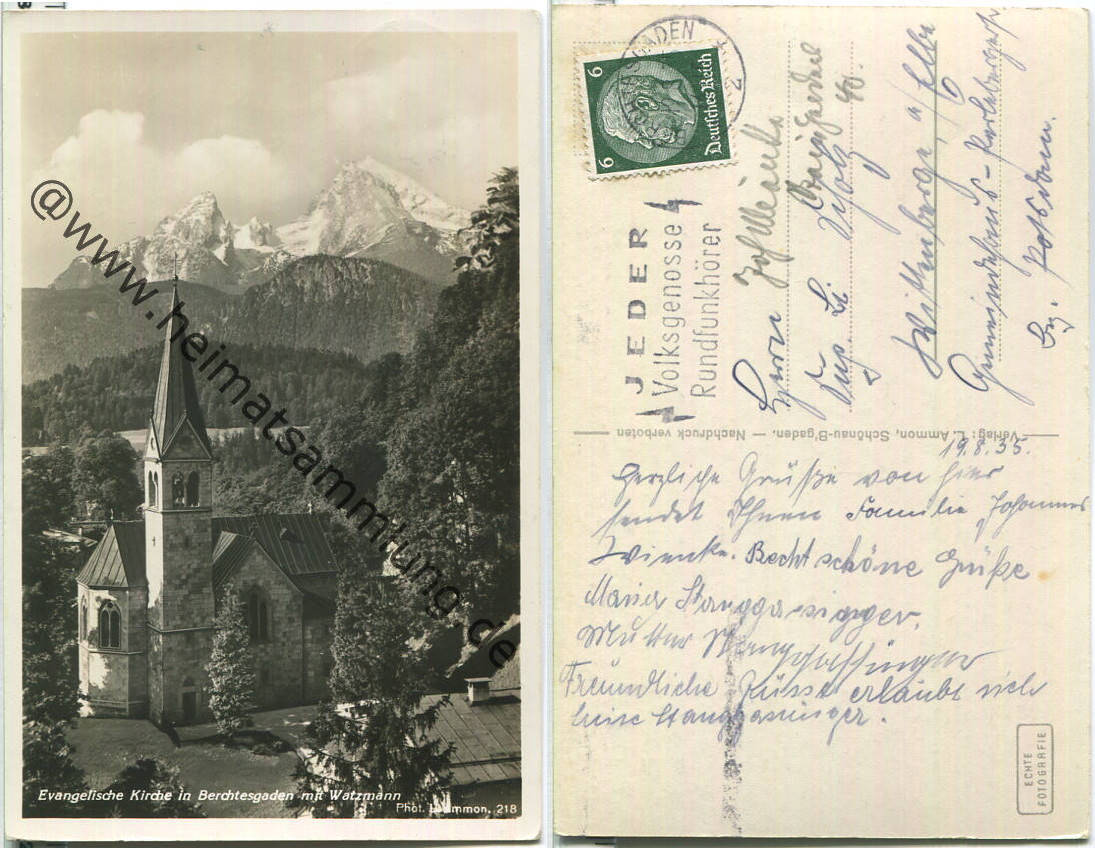 @www.heimatsammlung.de
Evangelische Kirche in Berchtesgaden mit Watzmann
Phot. L. Ammon, 218
BERCHTESGADEN
6
Deutsches Reich
6
JEDER
Volksgenosse
Rundfunkhörer
Herrn
Wittenberge, a/Elbe
Bez. Potsdam.
Verlag: L. Ammon, Schönau-B'gaden. — Nachdruck verboten
19.8.35.
Herzliche Grüße von hier
sendet Ihnen Familie Johannes
Wienke. Recht schöne Grüße
Maria Stanggassinger.
Mutter Stanggassinger
Freundliche Grüsse erlaubt sich
Stanggassinger.
ECHTE
FOTOGRAFIE